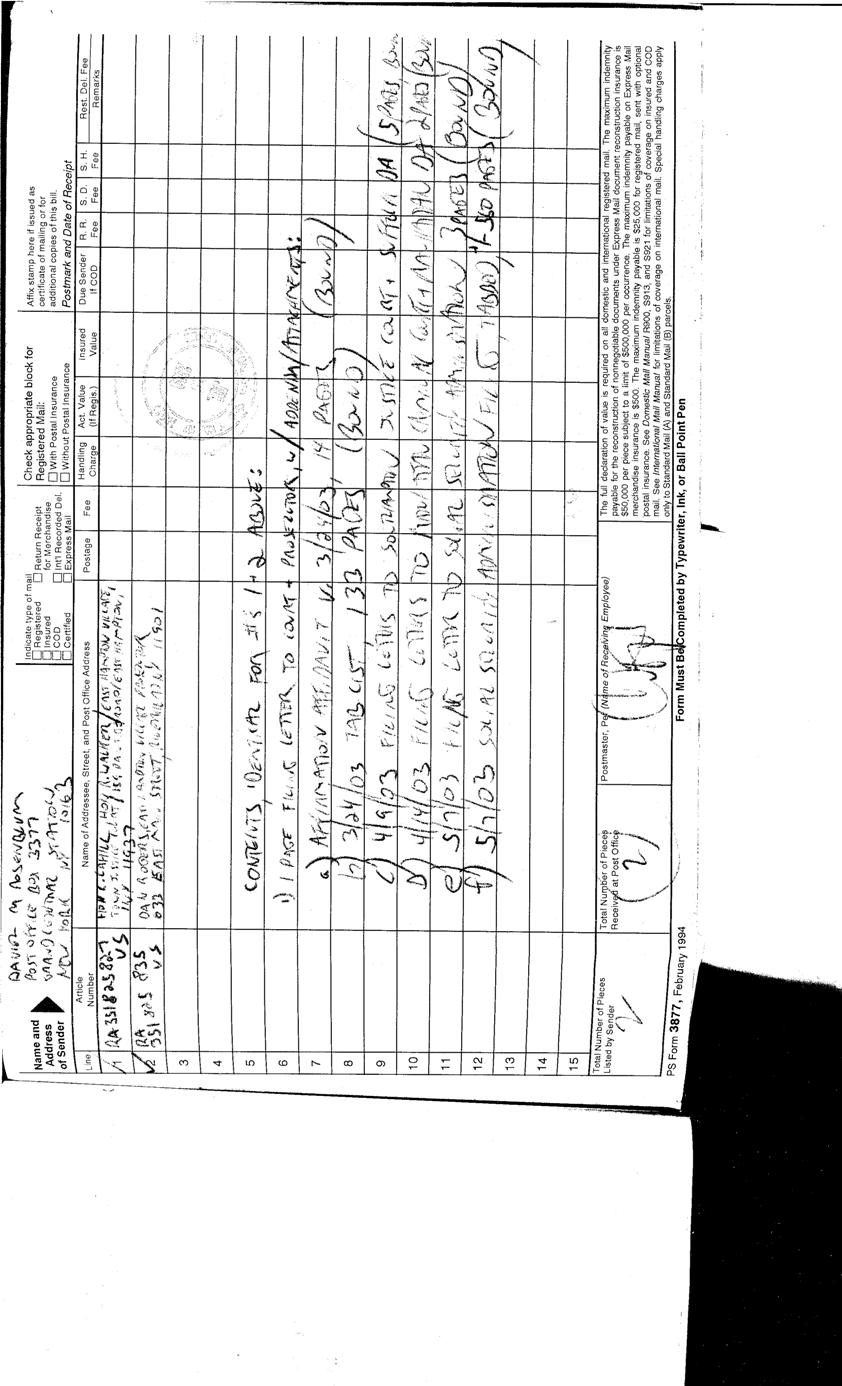 Name and
Address
of Sender
DAVID M ROSENBLUM
POST OFFICE BOX 3377
GRAND CENTRAL STATION
NEW YORK NY 10163
Indicate type of mail
Registered
Insured
COD
Certified
Return Receipt
for Merchandise
Int'l Recorded Del.
Express Mail
Check appropriate block for
Registered Mail:
With Postal Insurance
Without Postal Insurance
Affix stamp here if issued as
certificate of mailing or for
additional copies of this bill.
Postmark and Date of Receipt
Line
Article
Number
Name of Addressee, Street, and Post Office Address
Postage
Fee
Handling
Charge
Act. Value
(If Regis.)
Insured
Value
Due Sender
If COD
R. R.
Fee
S. D.
Fee
S. H.
Fee
Rest. Del. Fee
Remarks
1 RA 351 825 827 US HON C. CAHILL, HON R. WALKER/EAST HAMPTON VILLAGE,
TOWN JUSTICE COURT/159 EAST HAMPTON,
NY 11937
2 RA 351 825 835 US DAN ROGERS, EAST HAMPTON VILLAGE PROSECUTOR
633 EAST MAIN STREET, RIVERHEAD NY 11901
3
4
5 CONTENTS IDENTICAL FOR #'S 1+2 ABOVE:
6 1) 1 PAGE FILING LETTER TO COURT + PROSECUTORS, W/ ADDENDA/ATTACHMENTS:
7 a) AFFIRMATION AFFIDAVIT 3/24/03, 14 PAGES (BOUND)
8 b) 3/24/03 TAB LIST 133 PAGES (BOUND)
9 c) 4/9/03 FILING LETTERS TO SOUTHAMPTON JUSTICE COURT + SUFFOLK DA (5 PAGES BOUND
10 D) 4/14/03 FILING LETTERS TO MANHATTAN CRIMINAL COURT + MANHATTAN DA 2 PAGES (BOUND
11 e) 5/7/03 FILING LETTER TO SOCIAL SECURITY ADMINISTRATION 3 PAGES (BOUND)
12 f) 5/7/03 SOCIAL SECURITY ADMINISTRATION FILING, TABBED, +/- 560 PAGES (BOUND)
13
14
15
Total Number of Pieces
Listed by Sender
2
Total Number of Pieces
Received at Post Office
2
Postmaster, Per (Name of Receiving Employee)
The full declaration of value is required on all domestic and international registered mail. The maximum indemnity
payable for the reconstruction of nonnegotiable documents under Express Mail document reconstruction insurance is
$50,000 per piece subject to a limit of $500,000 per occurrence. The maximum indemnity payable on Express Mail
merchandise insurance is $500. The maximum indemnity payable is $25,000 for registered mail, sent with optional
postal insurance. See Domestic Mail Manual R900, S913, and S921 for limitations of coverage on insured and COD
mail. See International Mail Manual for limitations of coverage on international mail. Special handling charges apply
only to Standard Mail (A) and Standard Mail (B) parcels.
PS Form 3877, February 1994
Form Must Be Completed by Typewriter, Ink, or Ball Point Pen